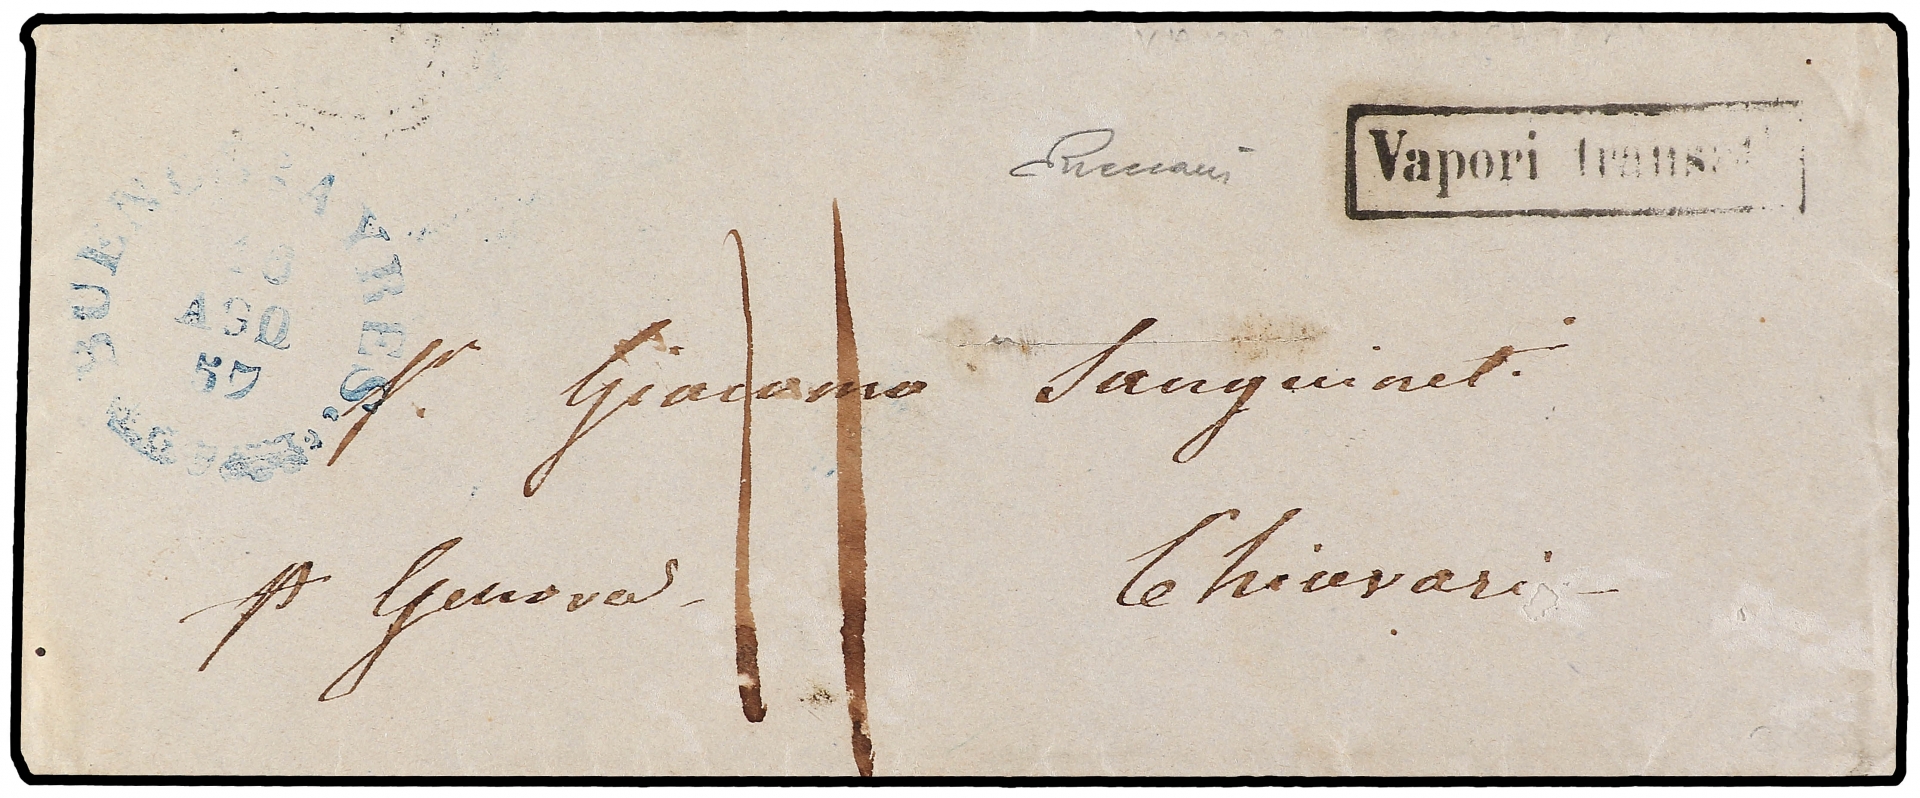 Vapori transat
BUENOS AYRES.
10
AGO
57
Sr. Giacomo Sanguinet.
Chiavari
pr Genova
11